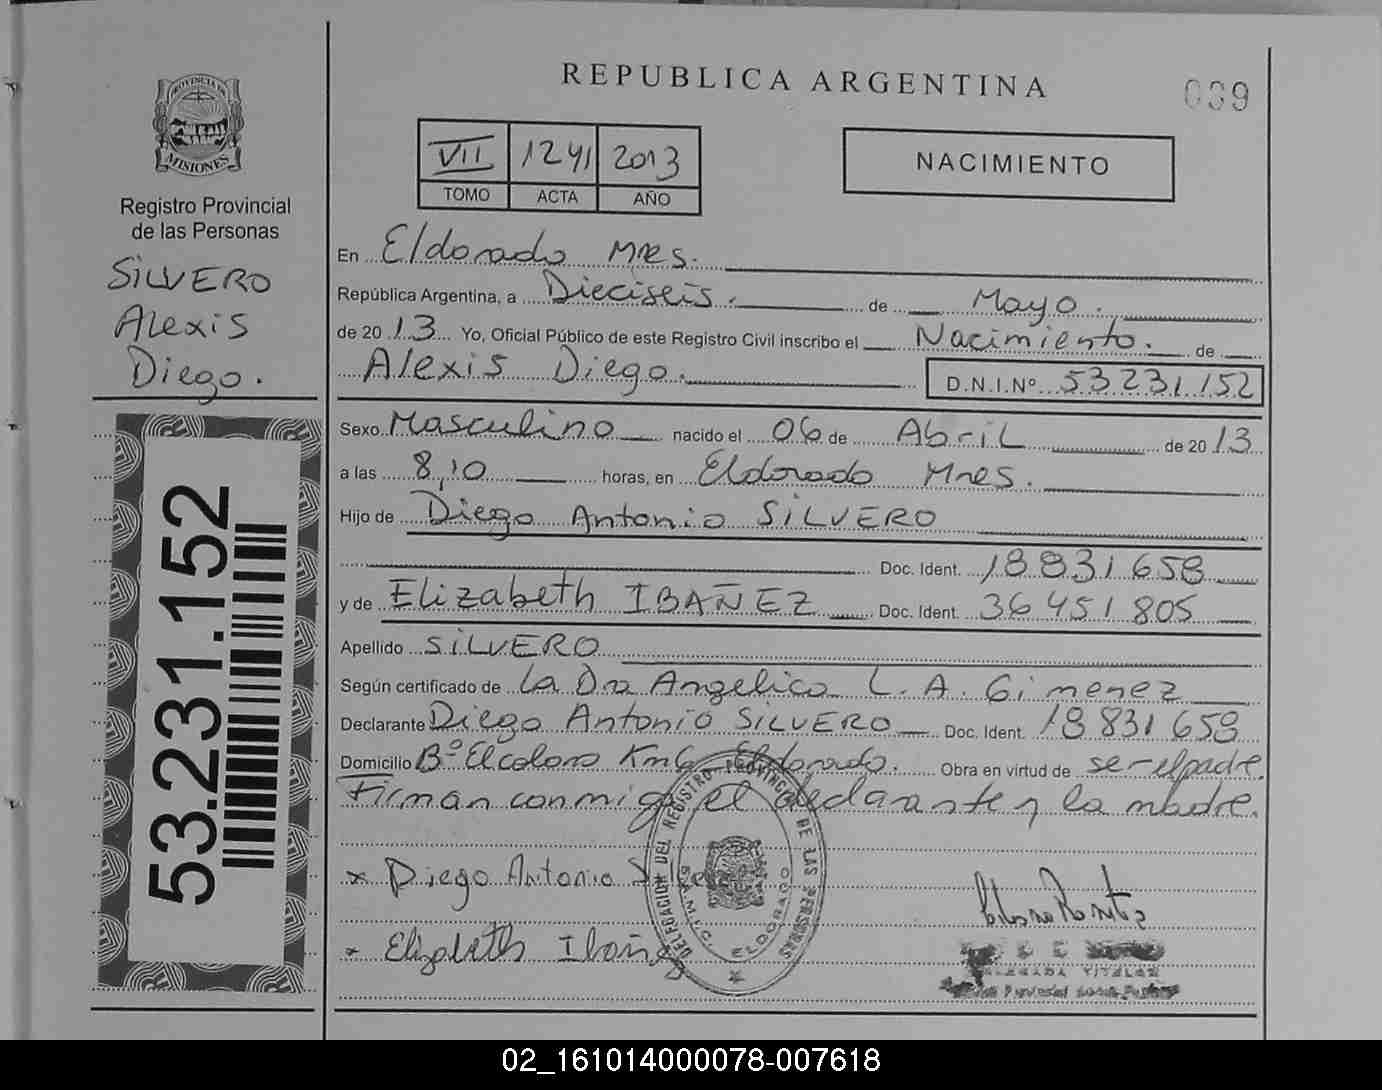 REPUBLICA ARGENTINA
039
PROVINCIA DE
MISIONES
Registro Provincial
de las Personas
SILVERO
Alexis
Diego.
53.231.152
VII 1241 2013
TOMO ACTA AÑO
NACIMIENTO
En Eldorado Mnes.
República Argentina, a Dieciseis. de Mayo.
de 2013 Yo, Oficial Público de este Registro Civil inscribo el Nacimiento. de
Alexis Diego. D.N.I.Nº 53231152
Sexo Masculino nacido el 06 de Abril de 2013
a las 8,10 horas, en Eldorado Mnes.
Hijo de Diego Antonio SILVERO
Doc. Ident. 18831658
y de Elizabeth IBAÑEZ Doc. Ident. 36451805
Apellido SILVERO
Según certificado de La Dra Angelica L. A. Gimenez
Declarante Diego Antonio SILVERO Doc. Ident. 18831658
Domicilio Bº Elcolono Km6 Eldorado. Obra en virtud de ser el padre.
Firman conmigo el declarante y la madre.
x Diego Antonio Silvero
x Elizabeth Ibañez
DELEGACION DEL REGISTRO PROVINCIAL DE LAS PERSONAS
ELDORADO
TITULAR
02_161014000078-007618